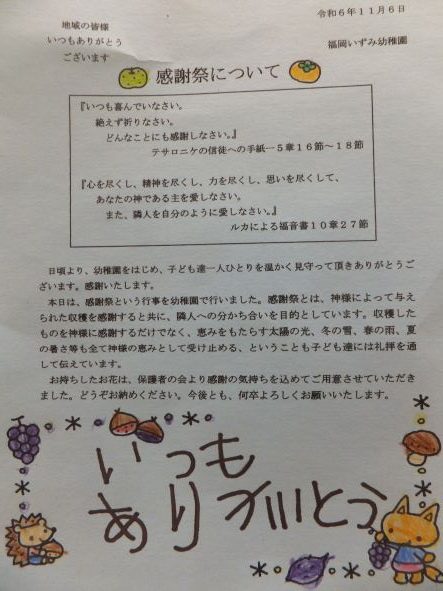 令和6年11月6日
地域の皆様
いつもありがとう
ございます
福岡いずみ幼稚園
感謝祭について
『いつも喜んでいなさい。
絶えず祈りなさい。
どんなことにも感謝しなさい。』
テサロニケの信徒への手紙…5章16節~18節
『心を尽くし、精神を尽くし、力を尽くし、思いを尽くして、
あなたの神である主を愛しなさい。
また、隣人を自分のように愛しなさい。』
ルカによる福音書10章27節
日頃より、幼稚園をはじめ、子ども達一人ひとりを温かく見守って頂きありがとうご
ざいます。感謝いたします。
本日は、感謝祭という行事を幼稚園で行いました。感謝祭とは、神様によって与え
られた収穫を感謝すると共に、隣人への分かち合いを目的としています。収穫した
ものを神様に感謝するだけでなく、恵みをもたらす太陽の光、冬の雪、春の雨、夏
の暑さ等も全て神様の恵みとして受け止める、ということも子ども達には礼拝を通
して伝えています。
お持ちしたお花は、保護者の会より感謝の気持ちを込めてご用意させていただき
ました。どうぞお納めください。今後とも、何卒よろしくお願いいたします。
いつも
ありがとう